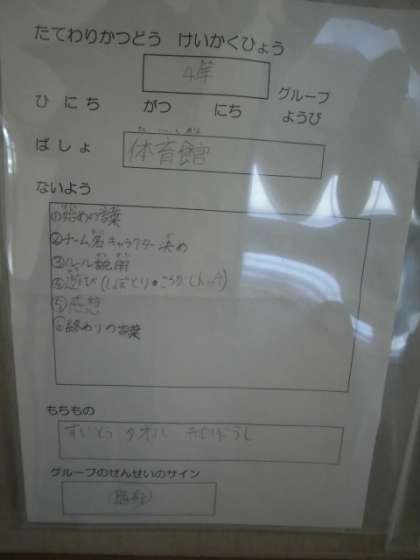 たてわりかつどう　けいかくひょう
4年
グループ
ひにち　がつ　にち　ようび
ばしょ　体育館
ないよう
①始めの言葉
②チーム名キャラクター決め
③ルール説明
④遊び(しっぽとり・ころがしドッヂ)
⑤感想
⑥終わりの言葉
もちもの
すいとう　タオル　赤白ぼうし
グループのせんせいのサイン